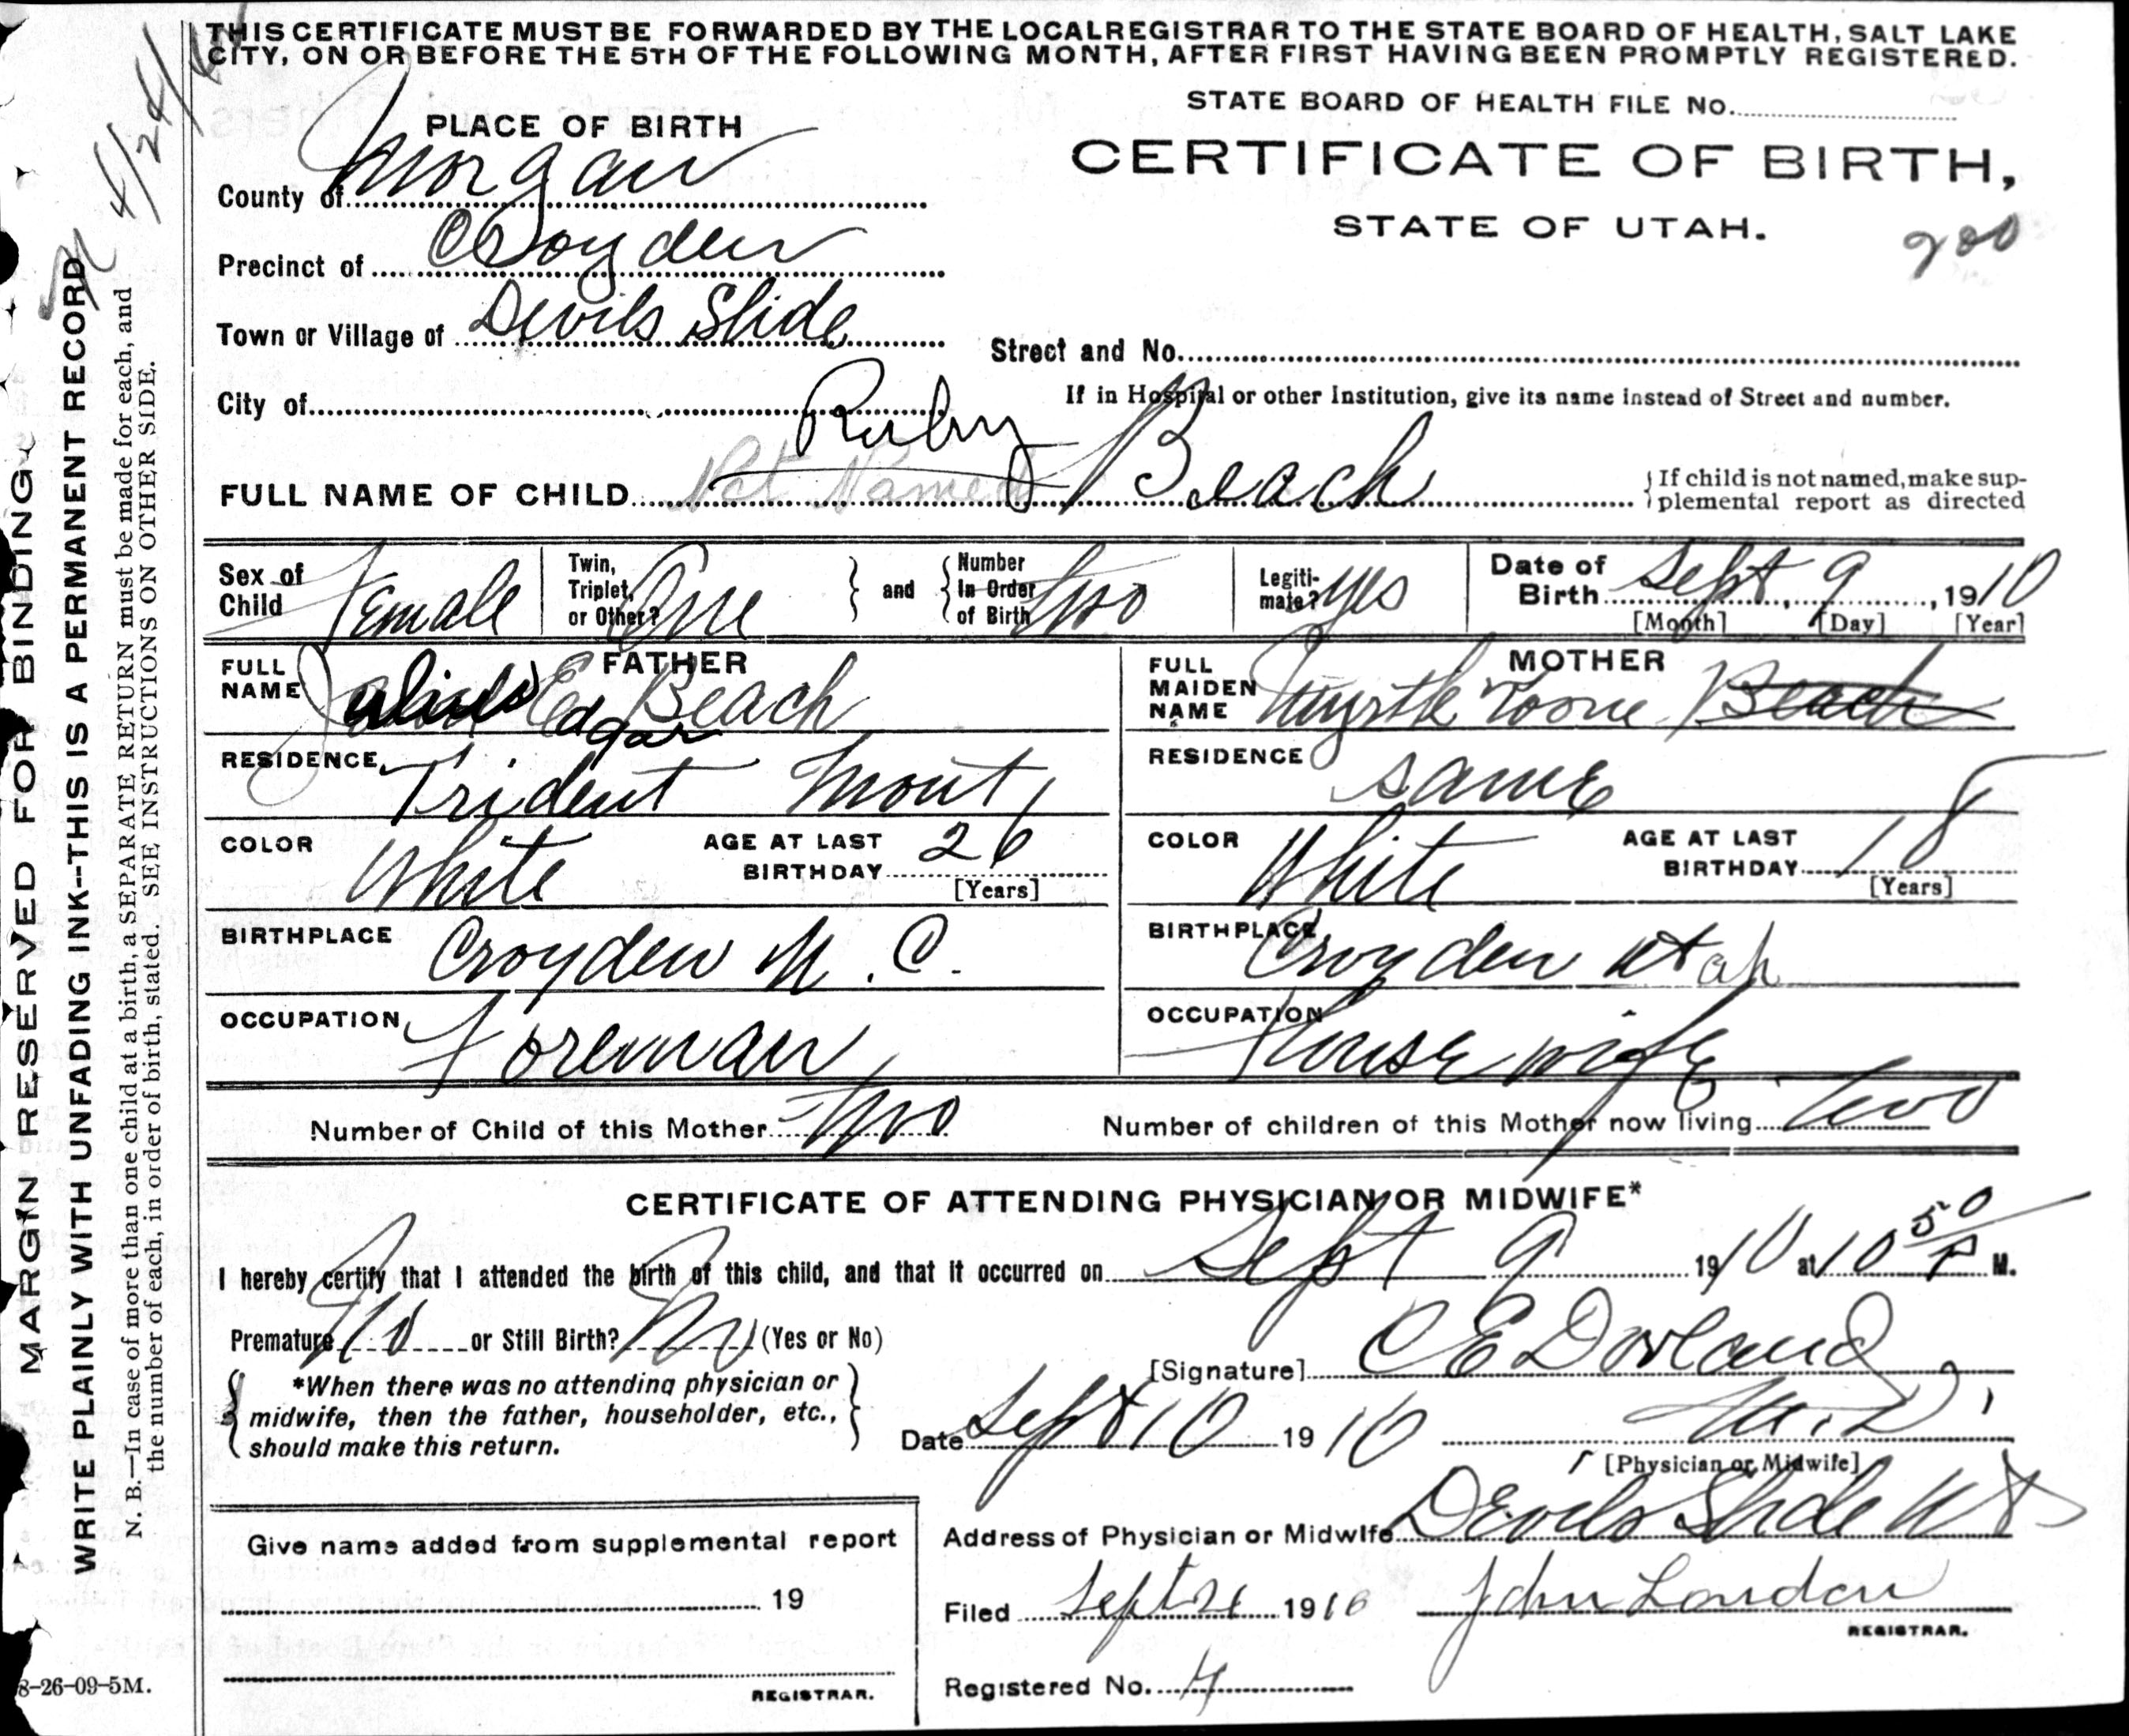 THIS CERTIFICATE MUST BE FORWARDED BY THE LOCAL REGISTRAR TO THE STATE BOARD OF HEALTH, SALT LAKE
CITY, ON OR BEFORE THE 5TH OF THE FOLLOWING MONTH, AFTER FIRST HAVING BEEN PROMPTLY REGISTERED.
STATE BOARD OF HEALTH FILE No.
PLACE OF BIRTH
CERTIFICATE OF BIRTH,
STATE OF UTAH.
200
County of Morgan
Precinct of Croyden
Town or Village of Devils Slide
Street and No.
City of
If in Hospital or other Institution, give its name instead of Street and number.
Ruby
FULL NAME OF CHILD Not Named Beach
If child is not named, make sup-
plemental report as directed
Sex of Child Female
Twin, Triplet, or Other? One and Number In Order of Birth Two
Legiti-mate? Yes
Date of Birth Sept 9, 1910
[Month] [Day] [Year]
FATHER
FULL NAME Julius Edgar Beach
RESIDENCE Trident Mont
COLOR White AGE AT LAST BIRTHDAY 26
[Years]
BIRTHPLACE Croyden N. C.
OCCUPATION Foreman
MOTHER
FULL MAIDEN NAME Myrtle Toone Beach
RESIDENCE same
COLOR White AGE AT LAST BIRTHDAY 18
[Years]
BIRTHPLACE Croyden Utah
OCCUPATION House wife
Number of Child of this Mother Two Number of children of this Mother now living Two
CERTIFICATE OF ATTENDING PHYSICIAN OR MIDWIFE*
I hereby certify that I attended the birth of this child, and that it occurred on Sept 9 1910 at 10 50 P M.
Premature No or Still Birth? No (Yes or No)
[Signature] C E Dorland
*When there was no attending physician or
midwife, then the father, householder, etc.,
should make this return.
Date Sept 10 1910 M.D.
[Physician or Midwife]
Address of Physician or Midwife Devils Slide Ut
Give name added from supplemental report
19
REGISTRAR.
Filed Sept 21 1910 John London
REGISTRAR.
Registered No. 4
MARGIN RESERVED FOR BINDING
WRITE PLAINLY WITH UNFADING INK--THIS IS A PERMANENT RECORD
N. B.—In case of more than one child at a birth, a SEPARATE RETURN must be made for each, and
the number of each, in order of birth, stated. SEE INSTRUCTIONS ON OTHER SIDE.
8-26-09-5M.